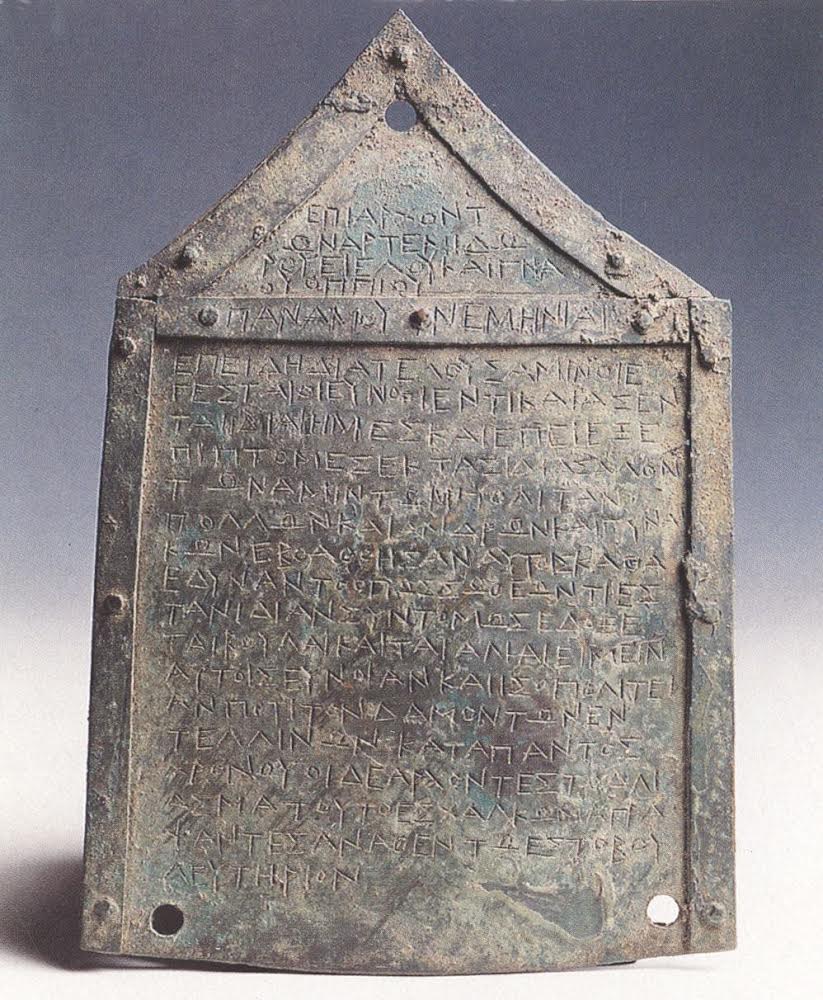 ΕΠΙΑΡΧΟΝΤ
ΩΝΑΡΤΕΜΙΔΩ
ΡΟΥΕΙΕΛΟΥΚΑΙΓΝΑ
ΟΥΟΠΠΙΟΥ
ΠΑΝΑΜΟΥ ΝΕΜΗΝΙΑΙ
ΕΠΕΙΔΗΔΙΑΤΕΛΟΥΣΑΜΙΝΟΙΕ
ΓΕΣΤΑΙΟΙΕΥΝΟΙ
ΚΑΙΕΠΕΙΕΞΕ
ΠΙΠΤΟΜΕΣΕΚΤΑΣΙΔΙΑΣΑΛΟΝ
ΤΩΝΑΜΙΝΤΩΜΠΟΛΙΤΑΝ
ΠΟΛΛΩΝΚΑΙΑΝΔΡΩΝΚΑΙΓΥΝΑ
ΚΩΝΕΒΟΑΘΗΣΑΝΑΥΤΙΣΚΑΘΑ
ΕΔΥΝΑΝΤΟΟΠΩΣΣΩΘΕΩΝΤΙΕΣ
ΤΑΝΙΔΙΑΝΣΥΝΤΟΜΩΣΕΔΟΞΕ
ΤΑΙΒΟΥΛΑΙΚΑΙΤΑΙΑΛΙΑΙΕΙΜΕΝ
ΑΥΤΟΙΣΕΥΝΟΙΑΝΚΑΙΙΣΟΠΟΛΙΤΕΙ
ΑΝΠΟΤΙΤΟΝΔΑΜΟΝΤΩΝΕΝ
ΤΕΛΛΙΝΩΝΚΑΤΑΠΑΝΤΟΣ
ΧΡΟΝΟΥΟΙΔΕΑΡΧΟΝΤΕΣΤΟΑΛΙ
ΑΣΜΑΤΟΥΤΟΕΣΧΑΛΚΩΜΑΓΡΑ
ΨΑΝΤΕΣΑΝΑΘΕΝΤΩΕΣΤΟΒΟΥ
ΛΕΥΤΗΡΙΟΝ